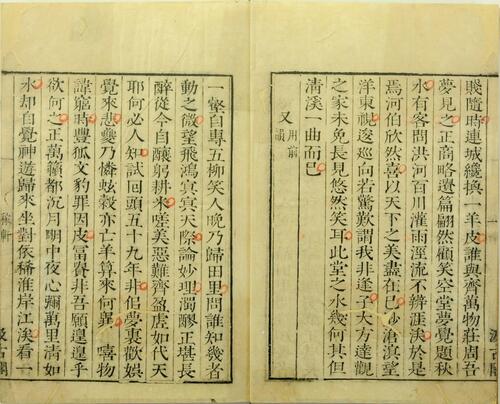 賤隨時連城纔換一羊皮誰與齊萬物莊周吾
夢見之正商略遺篇翩然顧笑空堂夢覺題秋
水有客問洪河百川灌雨涇流不辨涯涘於是
焉河伯欣然喜以天下之美盡在已渺滄溟望
洋東視逡巡向若驚歎謂我非逢子大方達觀
之家未免長見悠然笑耳此堂之水幾何其但
清溪一曲而已
又用前韻
一壑自專五柳笑人晚乃歸田里問誰知幾者
動之微望飛鴻冥冥天際論妙理濁醪正堪長
醉從今自釀躬耕來嗟美惡難齊盈虛如代天
耶何必人知試回頭五十九年非似夢裏歡娛
覺來悲夔乃憐蚿穀亦亡羊算來何異 嘻物
諱窮時豐狐文豹罪因皮富貴非吾願皇皇乎
欲何之正萬籟都沉月明中夜心彌萬里清如
水却自覺神遊歸來坐對依稀淮岸江涘看一